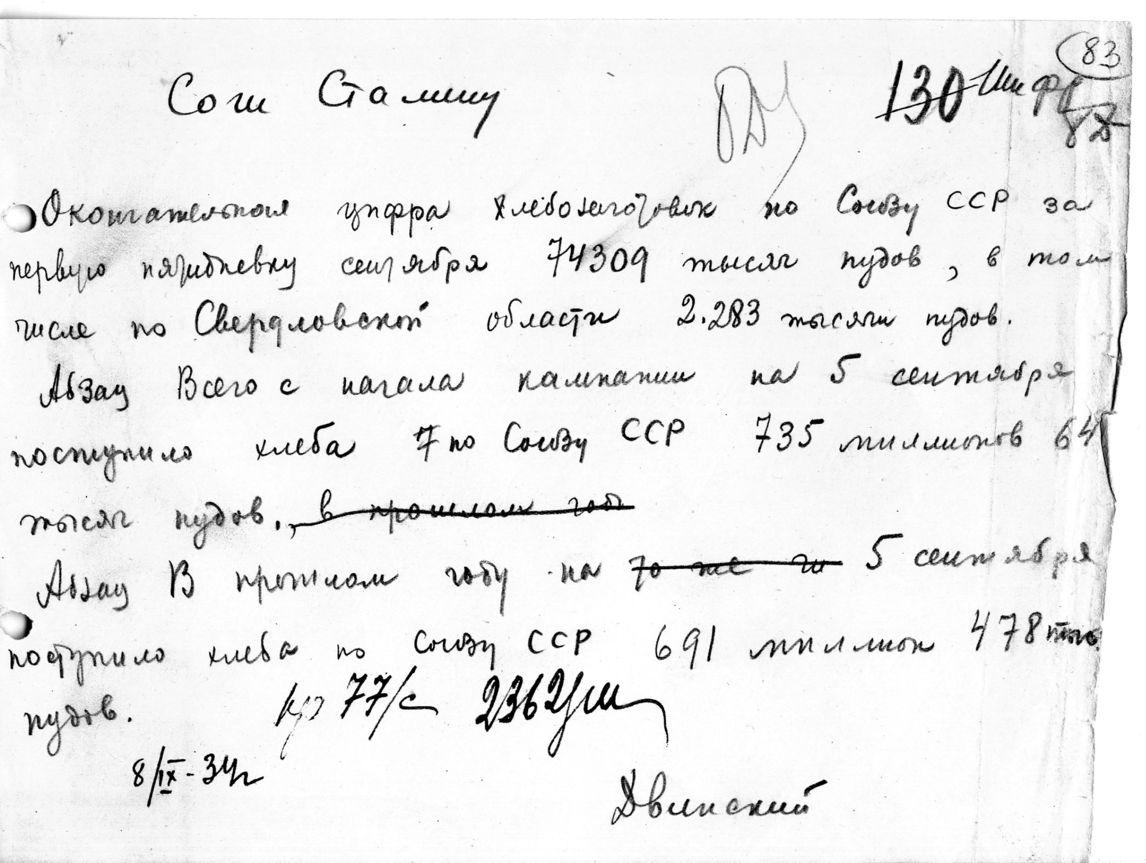 83
130 Шифр
Сочи Сталину
Окончательная цифра хлебозаготовок по Союзу ССР за
первую пятидневку сентября 74309 тысяч пудов, в том
числе по Свердловской области 2.283 тысячи пудов.
Абзац Всего с начала кампании на 5 сентября
поступило хлеба по Союзу ССР 735 миллионов 64
тысяч пудов., в прошлом году
Абзац В прошлом году на то же чи 5 сентября
поступило хлеба по Союзу ССР 691 миллион 478 тыс.
пудов.
77/с 2362/ш
8/IX-34г
Двинский